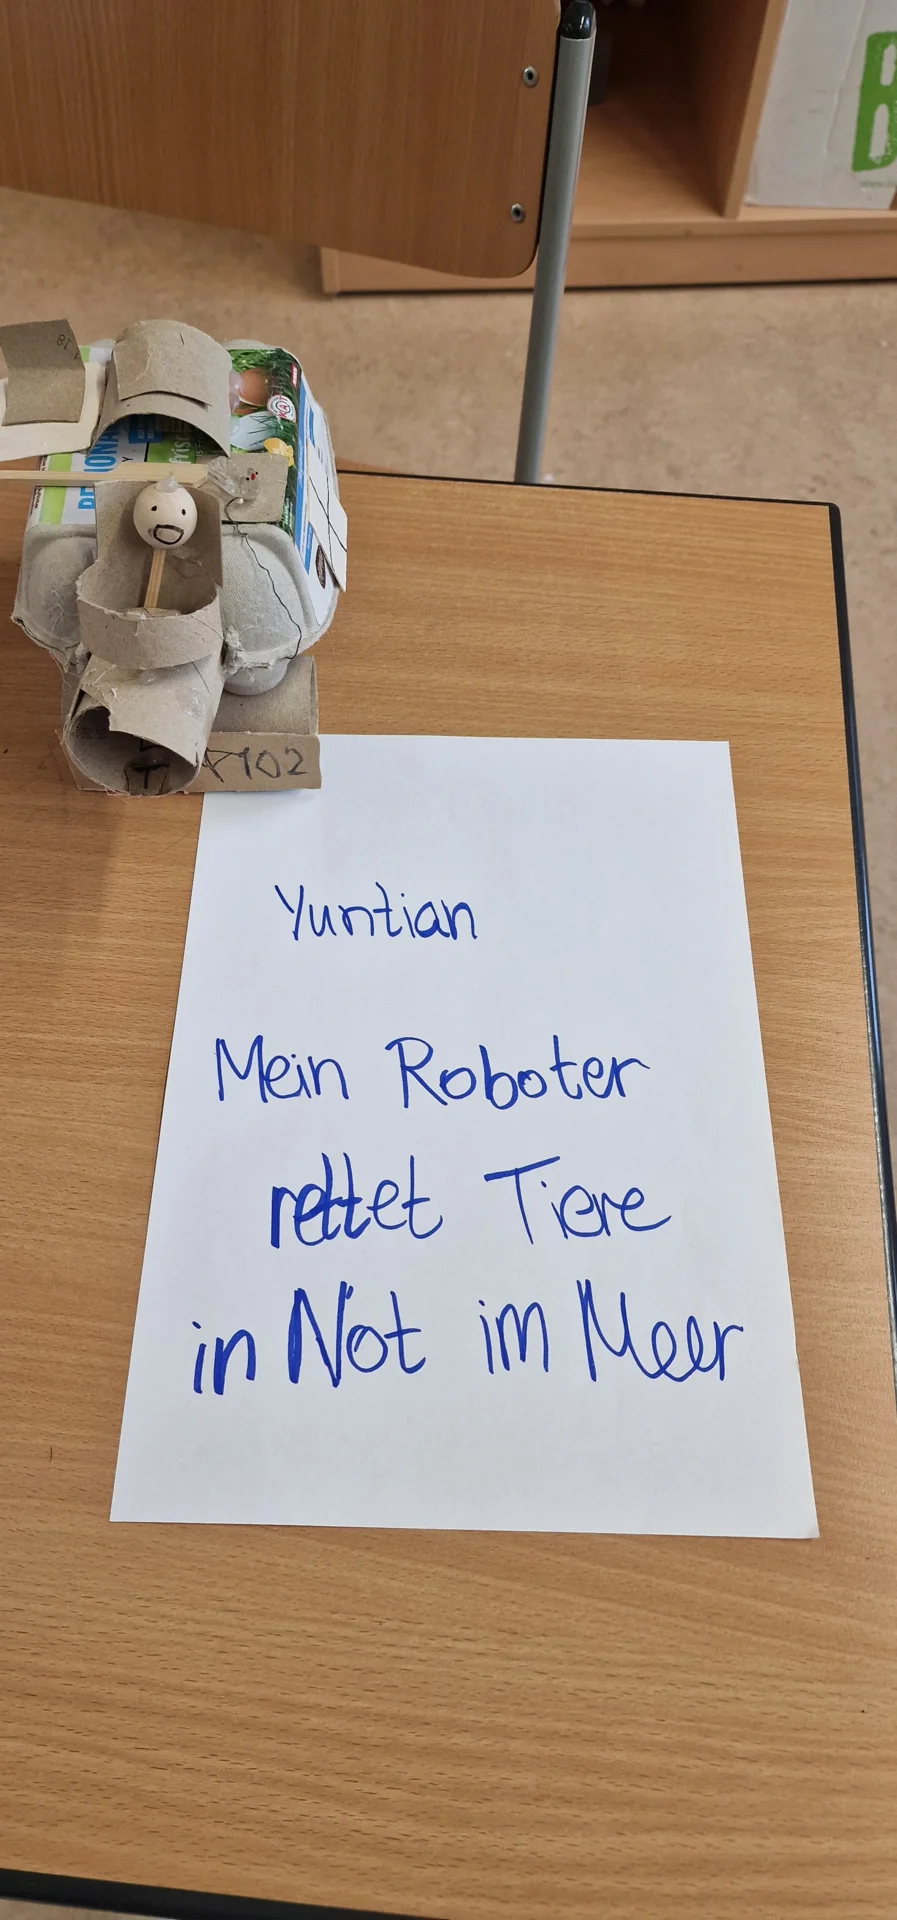 Y102
T
Yuntian
Mein Roboter
rettet Tiere
in Not im Meer